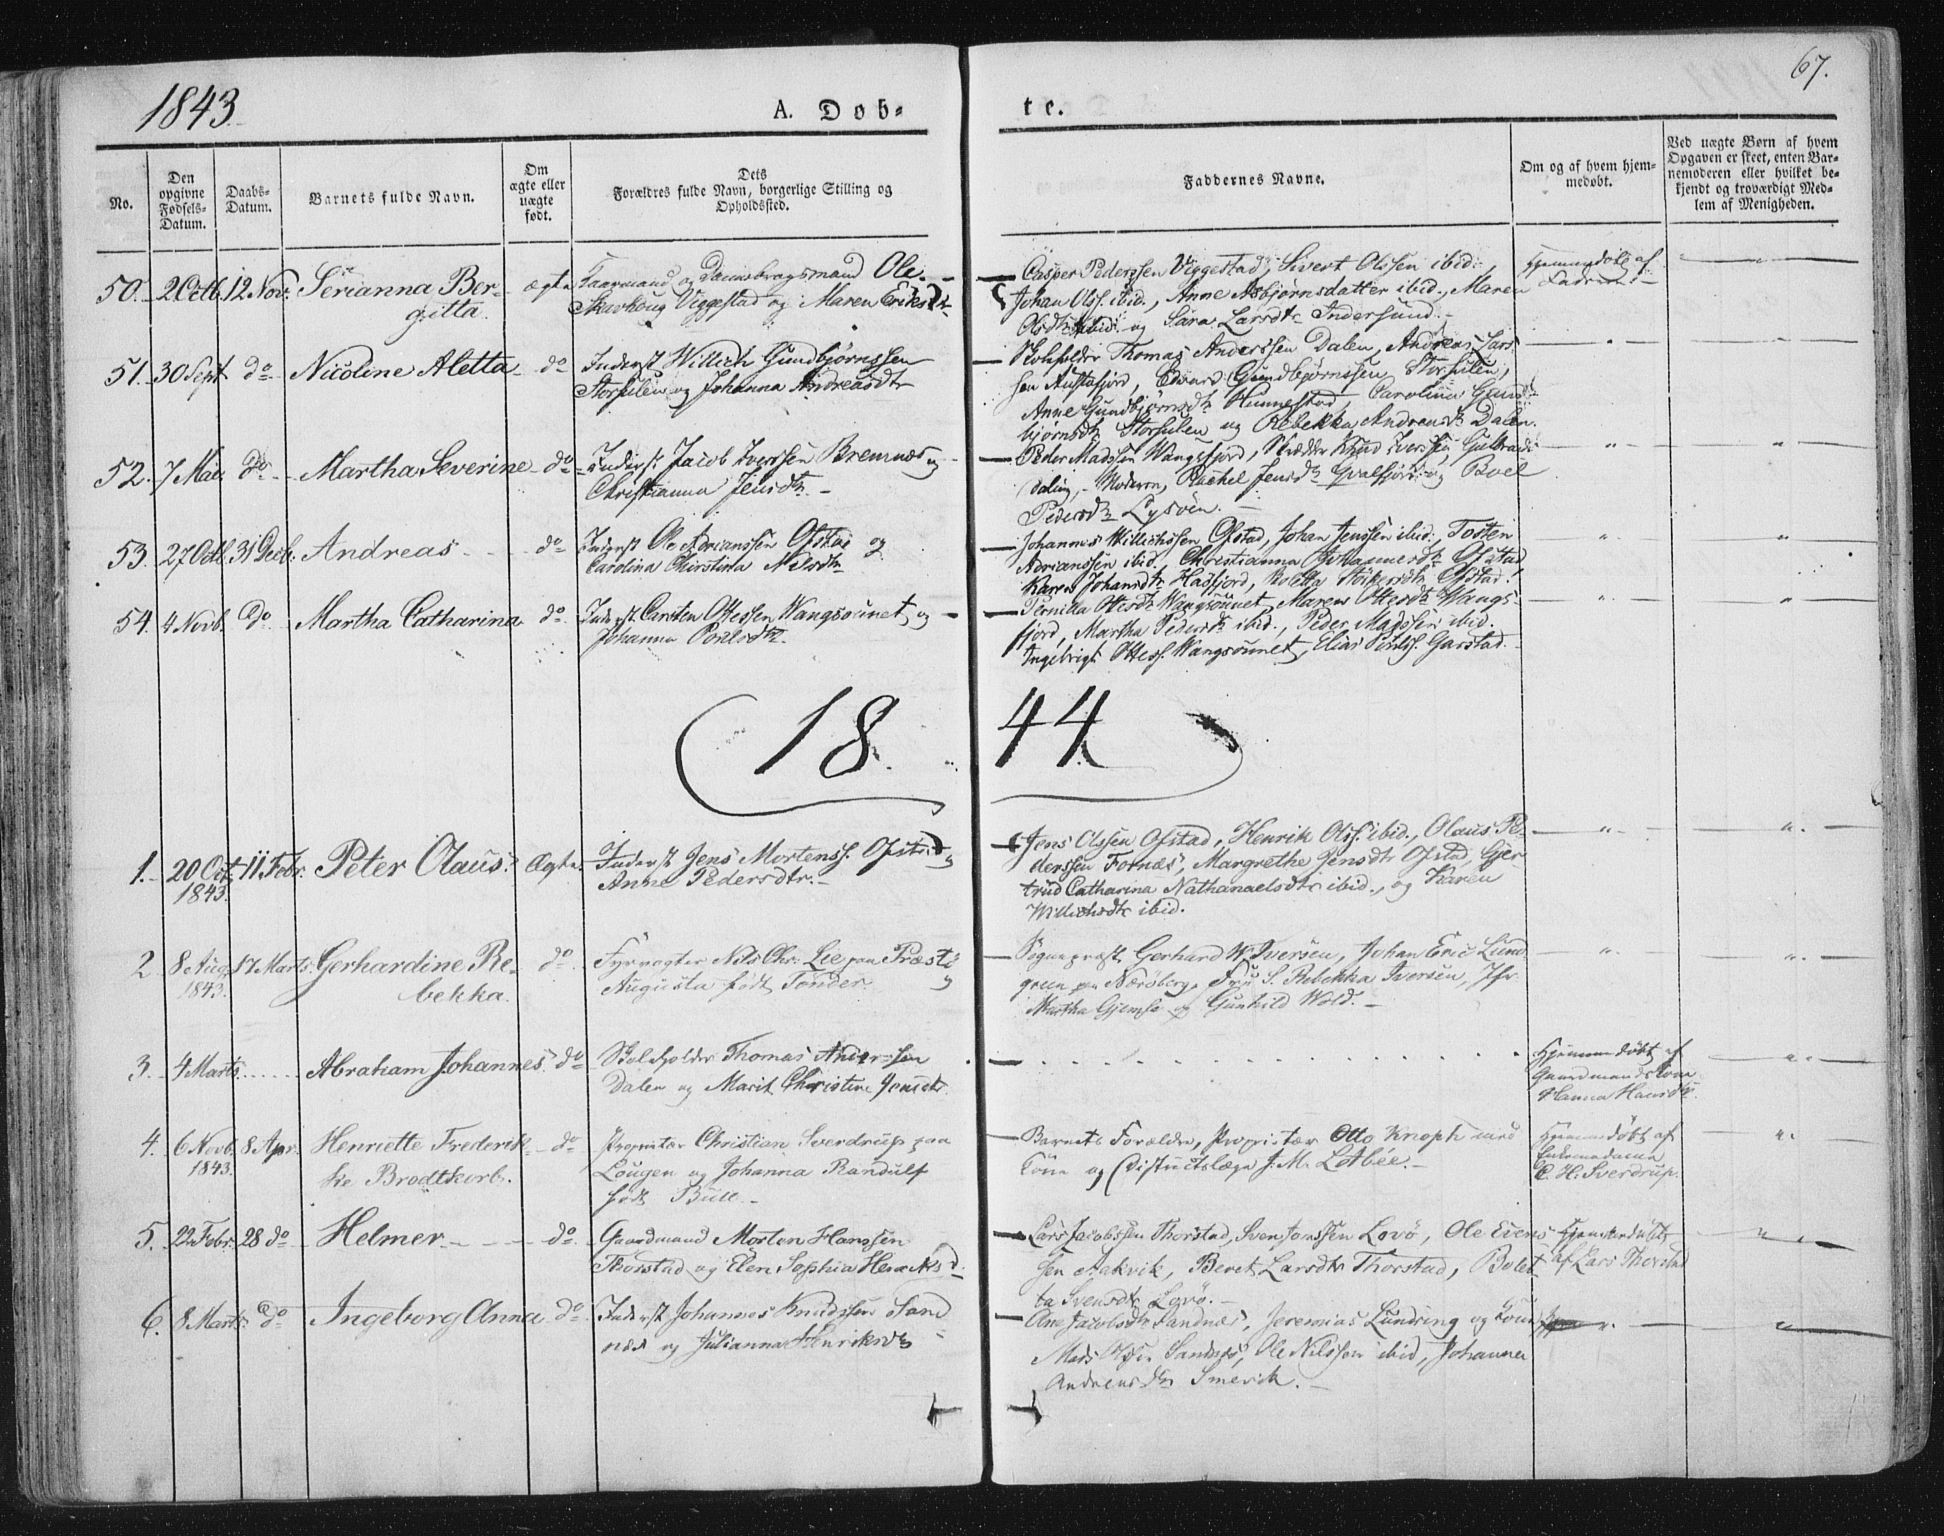 1843
A. Døb-
te.
67.
No.
Den opgivne Fødsels-Datum.
Daabs-Datum.
Barnets fulde Navn.
Om ægte eller uægte født.
Dets
Forældres fulde Navn, borgerlige Stilling og
Opholdssted.
Faddernes Navne.
Om og af hvem hjem-
medøbt.
Ved uægte Børn af hvem
Opgaven er skeet, enten Bar-
nemoderen eller hvilket be-
kjendt og troværdigt Med-
lem af Menigheden.
50. 2 Octb. 12 Nov. Serianna Ber-
gitta.
ægte
Gaarmand og Dannebrogsmand Ole
Skavhoug Viggestad og Maren Eriksdtr
Casper Pederssen Viggestad, Sivert Olssen ibid.,
Johan Olss. ibid., Anne Asbjørnsdatter ibid., Maren
Olsdtr ibid. og Sara Larsdtr Indersund.
Hjemmedøbt af
Faderen.
51. 30 Sept. do Nicoline Aletta do
Inderst Willich Gundbjørnssen
Storsulen og Johanna Andreasdtr
Skoleholder Thomas Anderssen Dalen, Andreas Lars-
sen Austafjord, Edvard Gundbjørnssen Storsulen,
Anne Gundbjørnsdtr Hunnestad, Carolina Gund-
bjørnsdtr Storsulen og Rebekka Andreasdtr Dalen.
52. 7 Mai do Martha Severine do
Inderst Jacob Iverssen Bremnæs og
Christianna Jensdtr
Peder Madssen Wangsfjord, Skrædder Knud Iverssen Gulbrands-
daling, Moderen, Rachel Jensdtr Qvalfjord og Boel
Pedersdtr Lysøen.
53. 27 Octb. 31 Decb. Andreas do
Inderst Ole Adrianssen Ofstad og
Carolina Christina Nilsdtr
Johannes Willichssen Ofstad, Johan Jenssen ibid., Tosten
Adrianssen ibid., Christianna Johannesdtr Ofstad,
Karen Johansdtr Hasfjord, Ofstad.
54. 4 Novb. do Martha Catharina do
Inderst Carsten Ottessen Wangsøunet og
Johanna Povelsdtr
Pernilla Ottesdtr Wangsøunet, Maren Ottesdtr Wangs-
fjord, Martha Pedersdtr ibid., Peder Madssen ibid.
Ingebrigt Ottess. Wangsøunet, Elias Garstad.
1844
1. 20 Oct. 1843. 11 Febr. Peter Olaus. Ægte
Inderst Jens Mortenss. Ofstad og
Anne Pedersdtr.
Jens Olssen Ofstad, Henrik Olss. ibid., Olaus Pe-
derssen Fornæs, Margrethe Jensdtr Ofstad, Gjer-
trud Catharina Nathanaelsdtr ibid., og Karen
Willichsdtr ibid.
2 8 Aug. 1843. 17 Marts. Gerhardine Re-
bekka.
do
Fyrvogter Nils Chr. Lie paa Præstø
Augusta født Tønder
Sognepræst Gerhard W. Iversen, Johan Eric Lund-
green paa Nærøberg, Frue S. Rebekka Iversen, Jfr
Martha Gjemse og Gunhild Wold.
3. 4 Marts. Abraham Johannes do
Skoleholder Thomas Anderssen
Dalen og Marit Christine Jensdtr
Hjemmedøbt af
Gaardmandskone
Hanna Hansdtr.
4. 6 Novb. 1843. 8 Apr. Henriette Frederik-
ke Brodtkorb.
do
Proprietær Christian Sverdrup paa
Lougen og Johanna Randulf
født Bull.
Barnets Forældre, Proprietær Otto Knoph med
Kone og Districtslæge J. M. LeAbée.
Hjemmedøbt af
Enkemadame
C. H. Sverdrup.
5. 22 Febr. 28 do Helmer do
Gaardmand Morten Hanssen
Thorstad og Elen Sophia Henriksd.
Lars Jacobssen Thorstad, Sven Jonssen Lovø, Ole Evens-
sen Aakvik, Beret Larsdtr Thorstad, Bolet-
ta Svensdtr Lovø.
Hjemmedøbt
af Lars Thorstad
6. 8 Marts do Ingeborg Anna do
Inderst Johannes Knudssen Sand-
næs og Julianna Henriksdtr
Ane Jacobsdtr Sandnæs, Jeremias Lundring og Kone
Mads Sandnæs, Ole Nilssen ibid., Johanna
Andreasdtr Smevik.